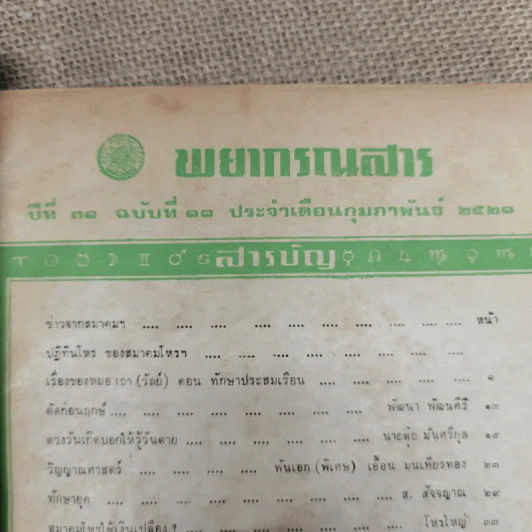 พยากรณสาร
ปีที่ ๓๑ ฉบับที่ ๑๑ ประจำเดือนกุมภาพันธ์ ๒๕๒๑
สารบัญ
ข่าวจากสมาคมฯ .... .... .... .... .... .... .... .... .... .... หน้า
ปฏิทินโหร ของสมาคมโหรฯ .... .... .... .... .... .... .... ....
เรื่องของหมอ เถา (วัลย์) ตอน ทักษาประสมเรือน .... .... .... .... .... ๑
ตัดก่อนฤกษ์ .... .... .... .... .... .... .... .... พัฒนา พัฒนศิริ ๑๓
ดวงวันเกิดบอกให้รู้วันตาย .... .... .... .... .... นายตุ๋ย มันศรีกุล ๑๙
วิญญาณศาสตร์ .... .... .... .... พันเอก (พิเศษ) เอื้อน มนเทียรทอง ๒๓
ทักษายุค .... .... .... .... .... .... .... .... ส. สัจจญาณ ๒๙
สมาคมโหรใช้เงินเปลือง ? .... .... .... .... .... .... โหรใหญ่ ๓๓